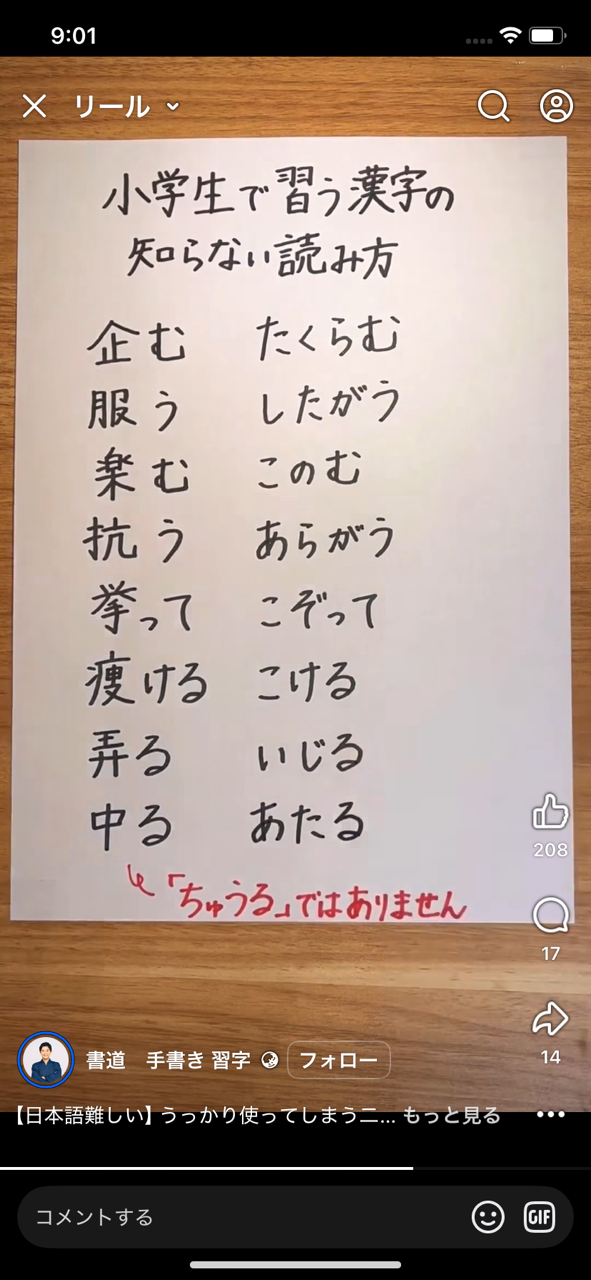 9:01
リール
小学生で習う漢字の
知らない読み方
企む たくらむ
服う したがう
楽む このむ
抗う あらがう
挙って こぞって
痩ける こける
弄る いじる
中る あたる
「ちゅうる」ではありません
208
17
14
書道 手書き 習字 フォロー
【日本語難しい】うっかり使ってしまう二... もっと見る
コメントする
GIF